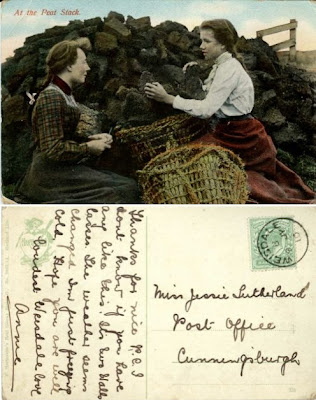 At the Peat Stack.
Thanks for nice P.C. I
dont know if you have
any like this. Its two Walls
lasses. The weather seems
changed now just freezing
cold. Hope you are well
fondest Weisdale love
Annie
Miss Jessie Sutherland
Post Office
Cunningsburgh
WEISDALE